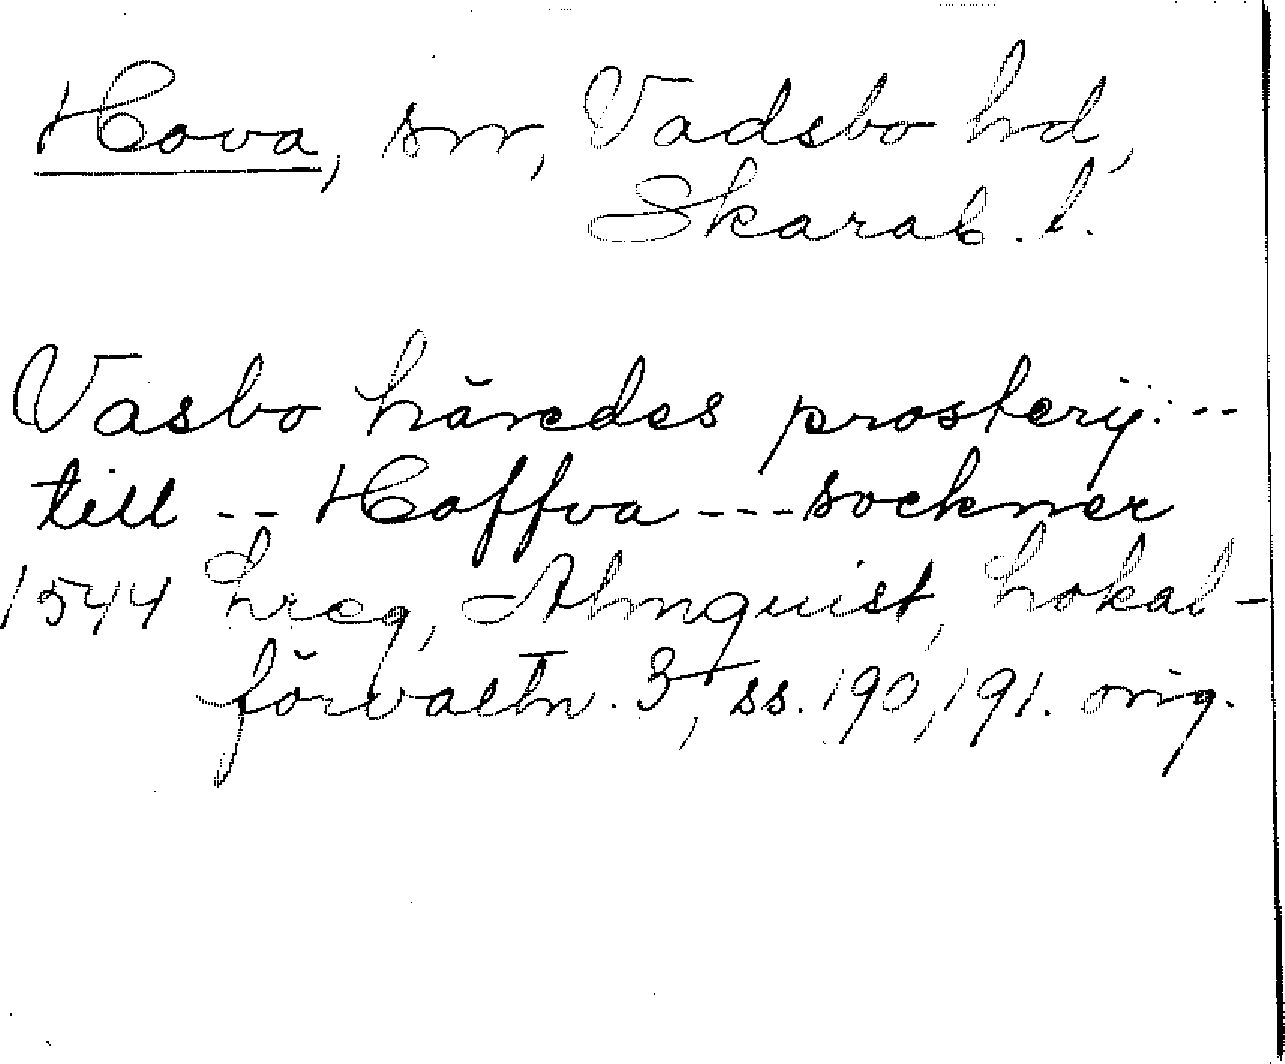 Hova, sn, Vadsbo hd,
Skarab. l.
Vasbo häredes prosterij: --
till -- Hoffva --- sockner
1544 hreg, Almquist, Lokal-
förvaltn. 3, ss. 190, 191. orig.